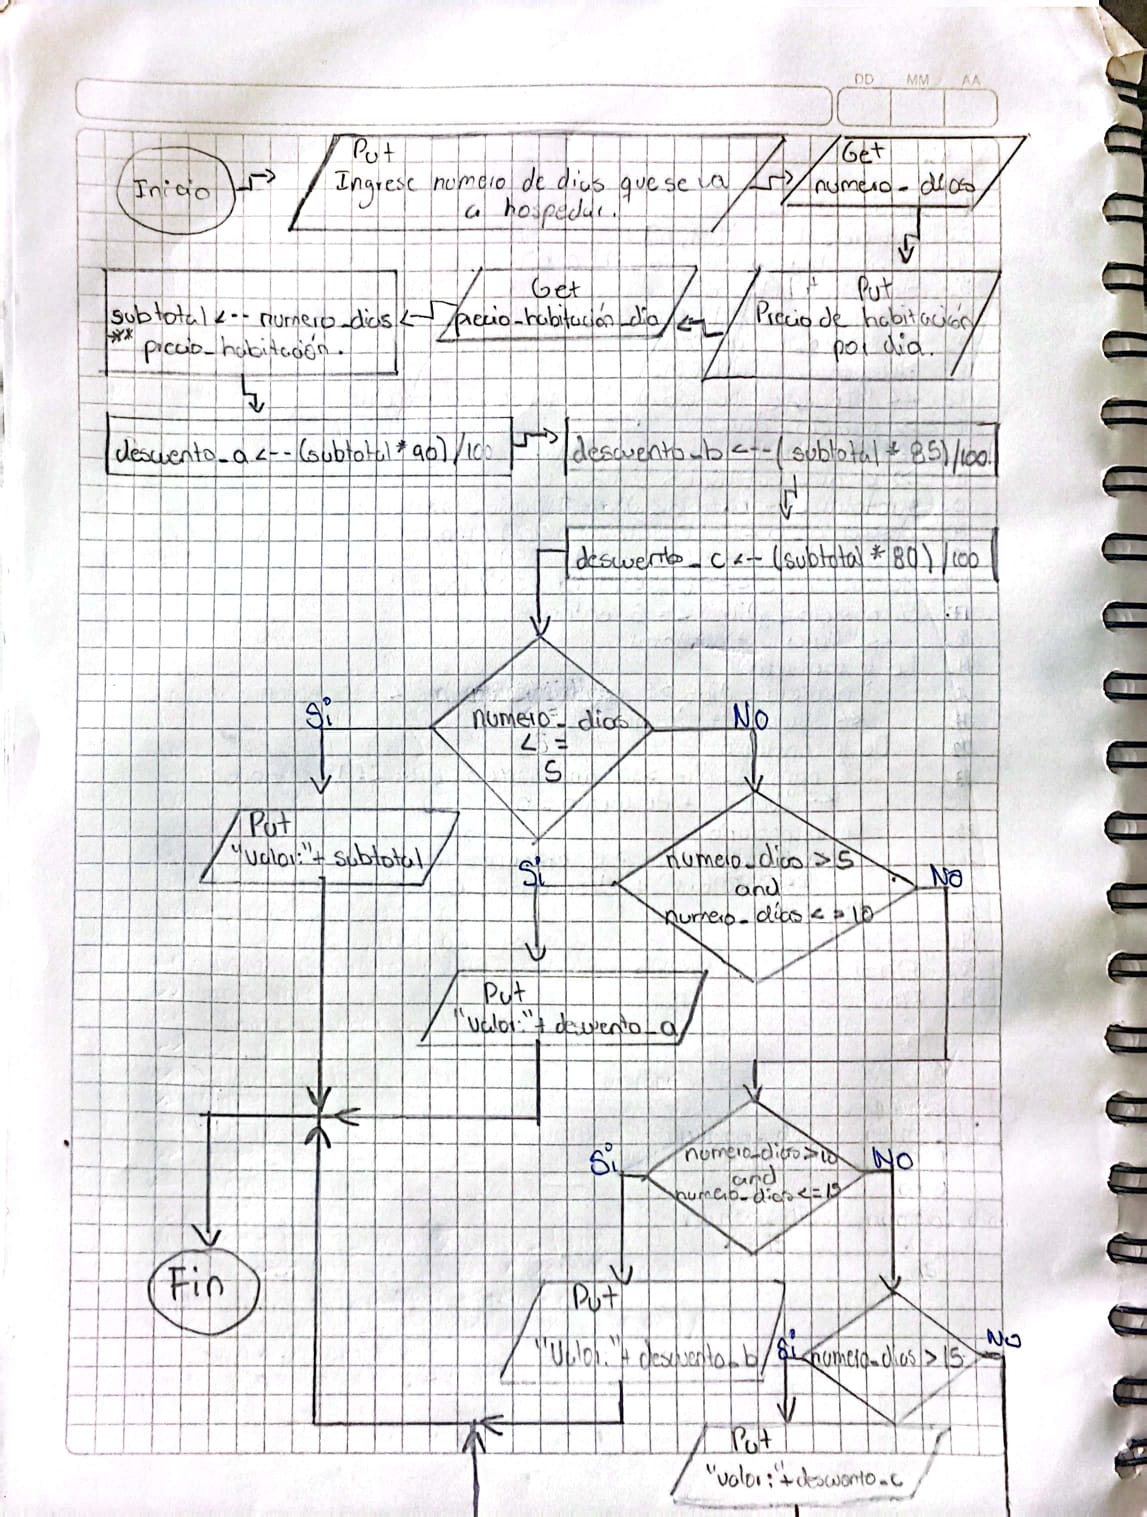 DD MM AA
Inicio
Put
Ingrese numero de dias que se va
a hospedar.
Get
numero_dias
Put
Precio de habitación
por dia.
Get
precio_habitación_dia
subtotal <-- numero_dias
** precio_habitación.
descuento_a <-- (subtotal * 90) / 100
descuento_b <-- (subtotal * 85) / 100.
descuento_c <-- (subtotal * 80) / 100
numero_dias
< =
5
Si
NO
Put
"valor:" + subtotal
numero_dias > 5
and
numero_dias < = 10
Si
NO
Put
"valor:" + descuento_a
numero_dias > 10
and
numero_dias <= 15
Si
NO
Fin
Put
"Valor:" + descuento_b
numero_dias > 15
Si
NO
Put
"valor:" + descuento_c